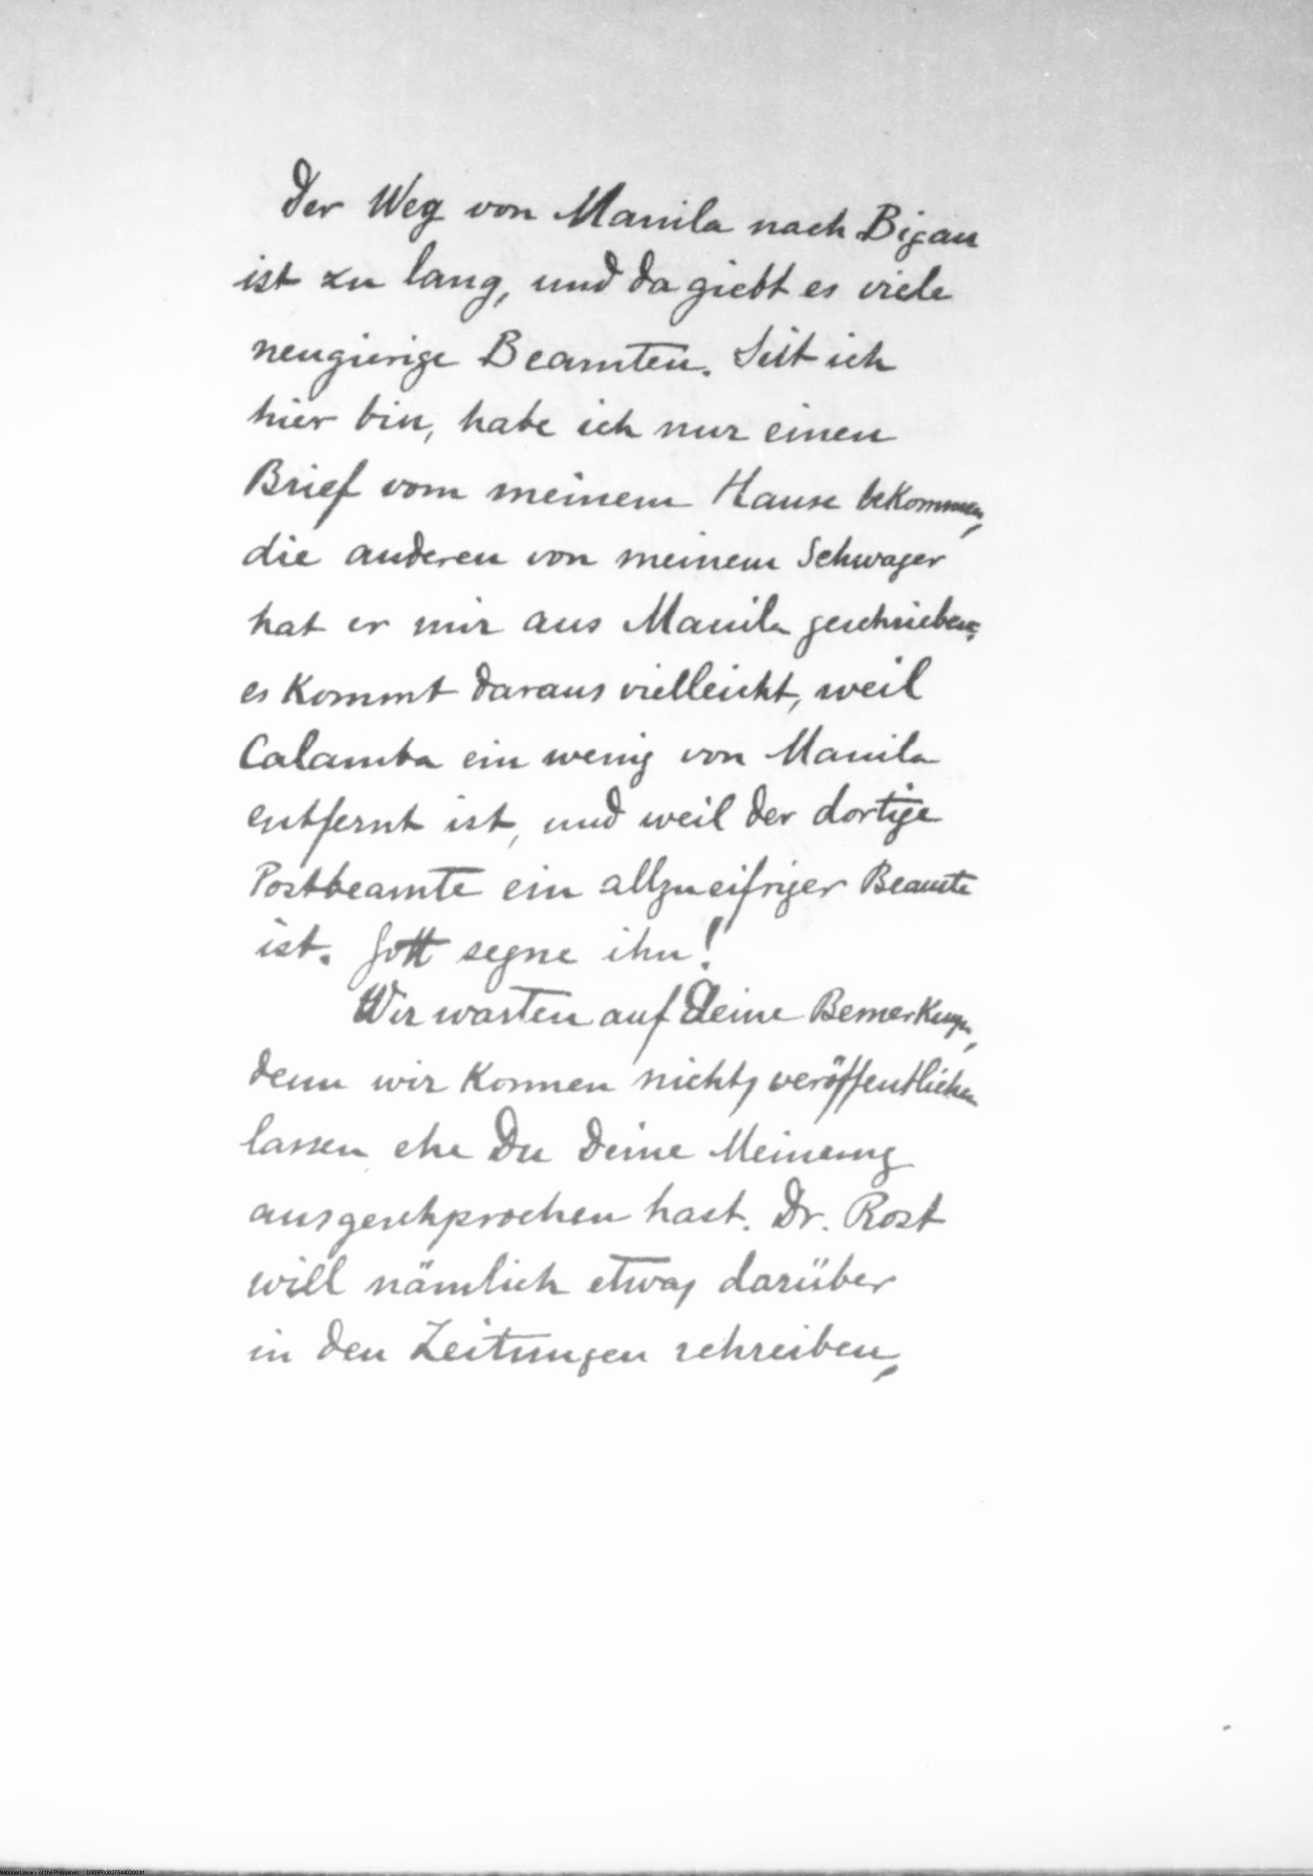 Der Weg von Manila nach Bigan
ist zu lang, und da giebt es viele
neugierige Beamten. Seit ich
hier bin, habe ich nur einen
Brief vom meinem Hause bekommen,
die anderen von meinem Schwager
hat er mir aus Manila geschrieben;
es kommt daraus vielleicht, weil
Calamba ein wenig von Manila
entfernt ist, und weil der dortige
Postbeamte ein allzueifriger Beamte
ist. Gott segne ihn!
Wir warten auf Deine Bemerkungen,
denn wir konnen nichts veröffentlichen
lassen ehe Du Deine Meinung
ausgeschprochen hast. Dr. Rost
will nämlich etwas darüber
in den Zeitungen schreiben,